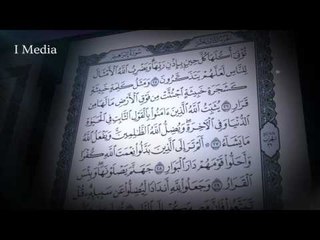 I Media
تُؤْتِىٓ أُكُلَهَا كُلَّ حِينٍۭ بِإِذْنِ رَبِّهَا ۗ وَيَضْرِبُ ٱللَّهُ ٱلْأَمْثَالَ
لِلنَّاسِ لَعَلَّهُمْ يَتَذَكَّرُونَ ٢٥ وَمَثَلُ كَلِمَةٍ خَبِيثَةٍ
كَشَجَرَةٍ خَبِيثَةٍ ٱجْتُثَّتْ مِن فَوْقِ ٱلْأَرْضِ مَا لَهَا مِن
قَرَارٍ ٢٦ يُثَبِّتُ ٱللَّهُ ٱلَّذِينَ ءَامَنُوا۟ بِٱلْقَوْلِ ٱلثَّابِتِ فِى ٱلْحَيَوٰةِ
ٱلدُّنْيَا وَفِى ٱلْـَٔاخِرَةِ ۖ وَيُضِلُّ ٱللَّهُ ٱلظَّٰلِمِينَ ۚ وَيَفْعَلُ ٱللَّهُ
مَا يَشَآءُ ٢٧ أَلَمْ تَرَ إِلَى ٱلَّذِينَ بَدَّلُوا۟ نِعْمَتَ ٱللَّهِ كُفْرًا
وَأَحَلُّوا۟ قَوْمَهُمْ دَارَ ٱلْبَوَارِ ٢٨ جَهَنَّمَ يَصْلَوْنَهَا ۖ وَبِئْسَ
ٱلْقَرَارُ ٢٩ وَجَعَلُوا۟ لِلَّهِ أَندَادًا لِّيُضِلُّوا۟ عَن سَبِيلِهِۦ ۗ قُلْ